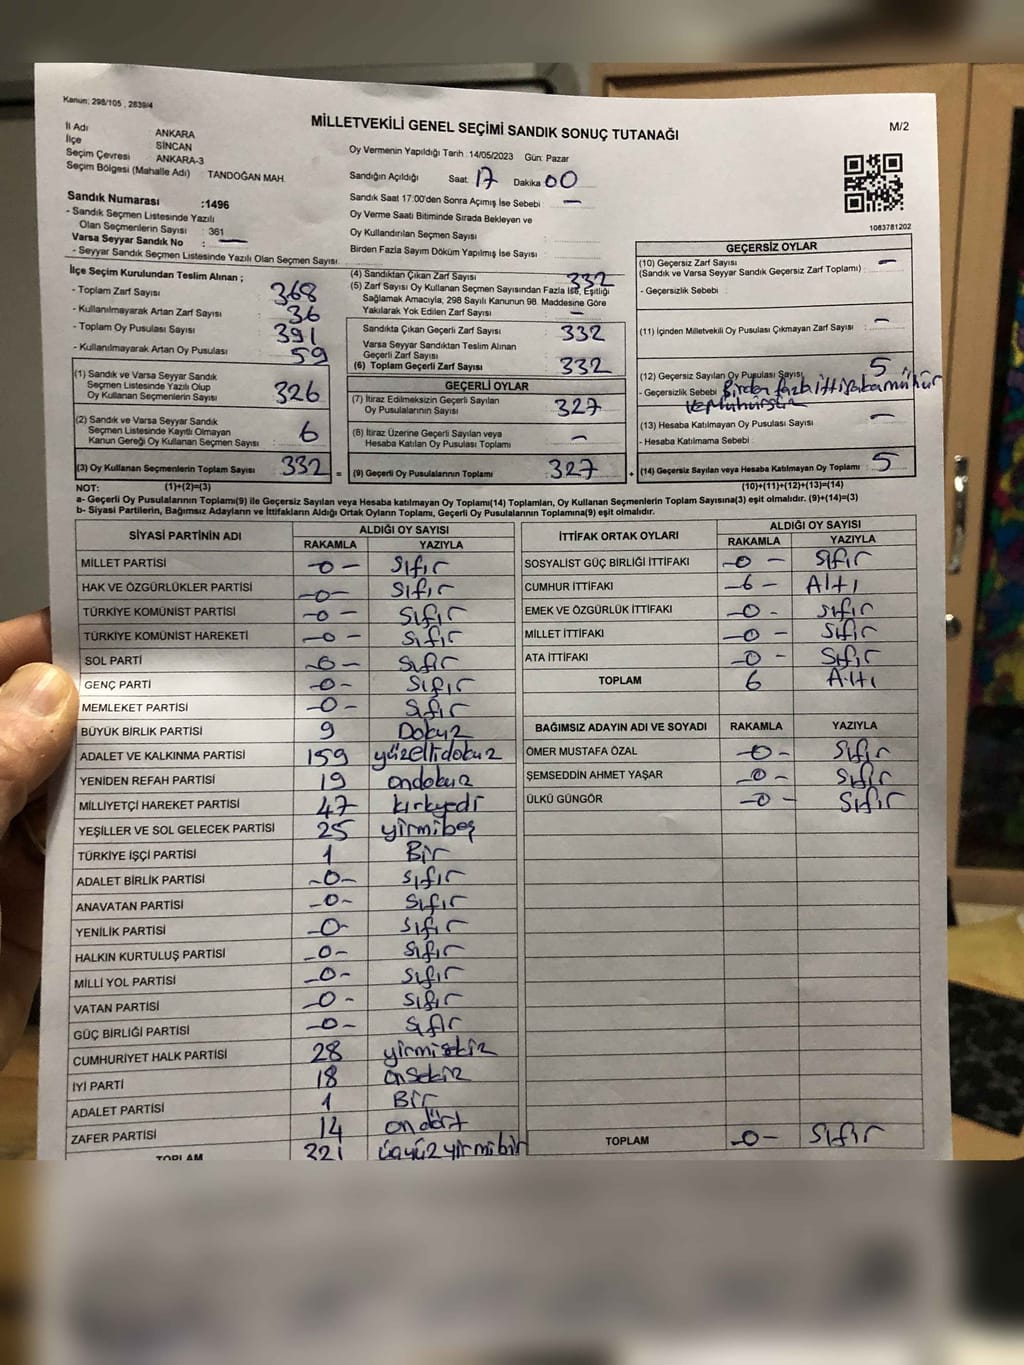 Kanun: 298/105 , 2839/4
MİLLETVEKİLİ GENEL SEÇİMİ SANDIK SONUÇ TUTANAĞI
M/2
İl Adı ANKARA
İlçe SİNCAN
Seçim Çevresi ANKARA-3
Seçim Bölgesi (Mahalle Adı) TANDOĞAN MAH.
Sandık Numarası :1496
- Sandık Seçmen Listesinde Yazılı
Olan Seçmenlerin Sayısı : 361
Varsa Seyyar Sandık No : —
- Seyyar Sandık Seçmen Listesinde Yazılı Olan Seçmen Sayısı:
Oy Vermenin Yapıldığı Tarih :14/05/2023 Gün: Pazar
Sandığın Açıldığı Saat 17 Dakika 00
Sandık Saat 17:00'den Sonra Açımış İse Sebebi —
Oy Verme Saati Bitiminde Sırada Bekleyen ve
Oy Kullandırılan Seçmen Sayısı :
Birden Fazla Sayım Döküm Yapılmış İse Sayısı :
1083781202
İlçe Seçim Kurulundan Teslim Alınan ;
- Toplam Zarf Sayısı : 368
- Kullanılmayarak Artan Zarf Sayısı : 36
- Toplam Oy Pusulası Sayısı : 391
- Kullanılmayarak Artan Oy Pusulası : 59
(1) Sandık ve Varsa Seyyar Sandık
Seçmen Listesinde Yazılı Olup
Oy Kullanan Seçmenlerin Sayısı : 326
(2) Sandık ve Varsa Seyyar Sandık
Seçmen Listesinde Kayıtlı Olmayan
Kanun Gereği Oy Kullanan Seçmen Sayısı : 6
(3) Oy Kullanan Seçmenlerin Toplam Sayısı : 332 =
(4) Sandıktan Çıkan Zarf Sayısı : 332
(5) Zarf Sayısı Oy Kullanan Seçmen Sayısından Fazla İse, Eşitliği
Sağlamak Amacıyla, 298 Sayılı Kanunun 98. Maddesine Göre
Yakılarak Yok Edilen Zarf Sayısı : —
Sandıkta Çıkan Geçerli Zarf Sayısı : 332
Varsa Seyyar Sandıktan Teslim Alınan
Geçerli Zarf Sayısı :
(6) Toplam Geçerli Zarf Sayısı : 332
GEÇERLİ OYLAR
(7) İtiraz Edilmeksizin Geçerli Sayılan
Oy Pusulalarının Sayısı : 327
(8) İtiraz Üzerine Geçerli Sayılan veya
Hesaba Katılan Oy Pusulası Toplamı : —
(9) Geçerli Oy Pusulalarının Toplamı : 327 +
GEÇERSİZ OYLAR
(10) Geçersiz Zarf Sayısı —
(Sandık ve Varsa Seyyar Sandık Geçersiz Zarf Toplamı) :
- Geçersizlik Sebebi :
(11) İçinden Milletvekili Oy Pusulası Çıkmayan Zarf Sayısı : —
(12) Geçersiz Sayılan Oy Pusulası Sayısı 5
- Geçersizlik Sebebi Birden fazla ittifaka mühür
(13) Hesaba Katılmayan Oy Pusulası Sayısı : —
- Hesaba Katılmama Sebebi :
(14) Geçersiz Sayılan veya Hesaba Katılmayan Oy Toplamı : 5
NOT: (1)+(2)=(3) (10)+(11)+(12)+(13)=(14)
a- Geçerli Oy Pusulalarının Toplamı(9) ile Geçersiz Sayılan veya Hesaba katılmayan Oy Toplamı(14) Toplamları, Oy Kullanan Seçmenlerin Toplam Sayısına(3) eşit olmalıdır. (9)+(14)=(3)
b- Siyasi Partilerin, Bağımsız Adayların ve İttifakların Aldığı Ortak Oyların Toplamı, Geçerli Oy Pusulalarının Toplamına(9) eşit olmalıdır.
SİYASİ PARTİNİN ADI ALDIĞI OY SAYISI
RAKAMLA YAZIYLA
MİLLET PARTİSİ -0- Sıfır
HAK VE ÖZGÜRLÜKLER PARTİSİ -0- Sıfır
TÜRKİYE KOMÜNİST PARTİSİ -0- Sıfır
TÜRKİYE KOMÜNİST HAREKETİ -0- Sıfır
SOL PARTİ -0- Sıfır
GENÇ PARTİ -0- Sıfır
MEMLEKET PARTİSİ -0- Sıfır
BÜYÜK BİRLİK PARTİSİ 9 Dokuz
ADALET VE KALKINMA PARTİSİ 159 yüzellidokuz
YENİDEN REFAH PARTİSİ 19 ondokuz
MİLLİYETÇİ HAREKET PARTİSİ 47 kırkyedi
YEŞİLLER VE SOL GELECEK PARTİSİ 25 yirmibeş
TÜRKİYE İŞÇİ PARTİSİ 1 Bir
ADALET BİRLİK PARTİSİ -0- Sıfır
ANAVATAN PARTİSİ -0- Sıfır
YENİLİK PARTİSİ -0- Sıfır
HALKIN KURTULUŞ PARTİSİ -0- Sıfır
MİLLİ YOL PARTİSİ -0- Sıfır
VATAN PARTİSİ -0- Sıfır
GÜÇ BİRLİĞİ PARTİSİ -0- Sıfır
CUMHURİYET HALK PARTİSİ 28 yirmisekiz
İYİ PARTİ 18 onsekiz
ADALET PARTİSİ 1 Bir
ZAFER PARTİSİ 14 ondört
TOPLAM 321 üçyüzyirmibir
İTTİFAK ORTAK OYLARI ALDIĞI OY SAYISI
RAKAMLA YAZIYLA
SOSYALİST GÜÇ BİRLİĞİ İTTİFAKI -0- Sıfır
CUMHUR İTTİFAKI -6- Altı
EMEK VE ÖZGÜRLÜK İTTİFAKI -0- Sıfır
MİLLET İTTİFAKI -0- Sıfır
ATA İTTİFAKI -0- Sıfır
TOPLAM 6 Altı
BAĞIMSIZ ADAYIN ADI VE SOYADI RAKAMLA YAZIYLA
ÖMER MUSTAFA ÖZAL -0- Sıfır
ŞEMSEDDİN AHMET YAŞAR -0- Sıfır
ÜLKÜ GÜNGÖR -0- Sıfır
TOPLAM -0- Sıfır